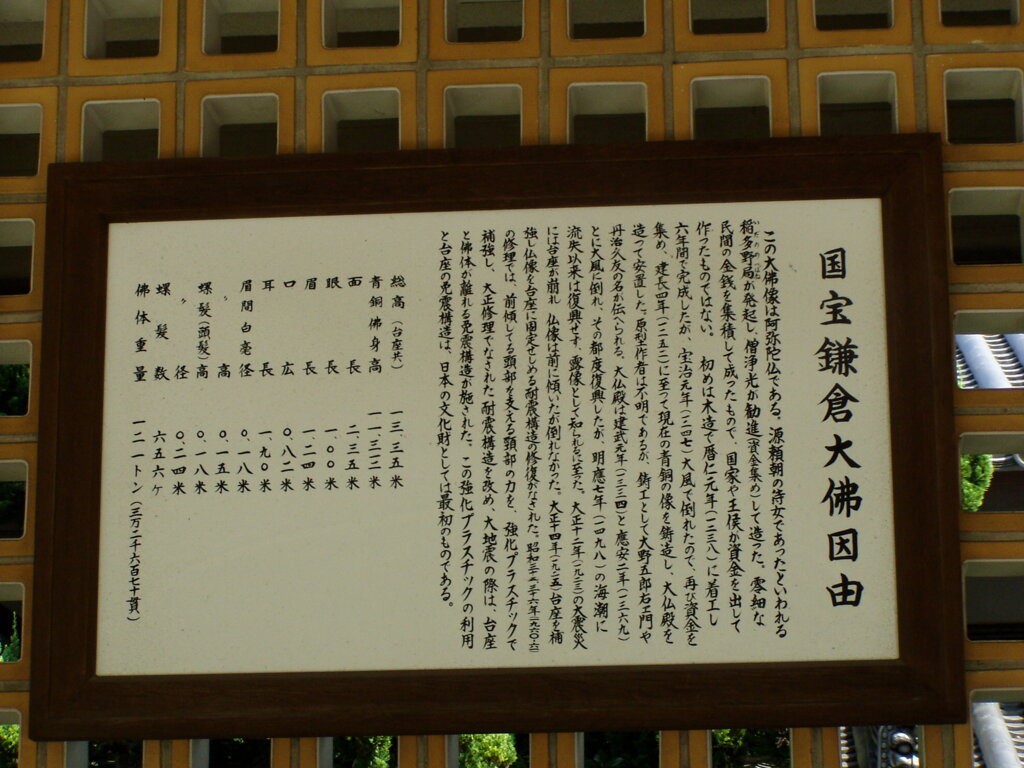 国宝鎌倉大佛因由
この大佛像は阿弥陀仏である。源頼朝の侍女であったといわれる
稲多野局が発起し、僧浄光が勧進(資金集め)して造った。零細な
民間の金銭を集積して成ったもので、国家や王侯が資金を出して
作ったものではない。 初めは木造で暦仁元年(一二三八)に着工し
六年間で完成したが、宝治元年(一二四七)大風で倒れたので、再び資金を
集め、建長四年(一二五二)に至って現在の青銅の像を鋳造し、大仏殿を
造って安置した。原型作者は不明であるが、鋳工として大野五郎右ェ門や
丹治久友の名が伝へられる。大仏殿は建武元年(一三三四)と應安二年(一三六九)
とに大風に倒れ、その都度復興したが、明應七年(一四九八)の海潮に
流失以来は復興せず、露像として知れるに至った。大正十二年(一九二三)の大震災
には台座が崩れ 仏像は前に傾いたが倒れなかった。大正十四年(一九二五)台座を補
強し仏像を台座に固定せしめる耐震構造の修復がなされた。昭和三五、三六年(一九六〇-六一)
の修理では、前傾してる頭部を支える頸部の力を、強化プラスチックで
補強し、大正修理でなされた耐震構造を改め、大地震の際は、台座
と佛体が離れる免震構造が施された。この強化プラスチックの利用
と台座の免震構造は、日本の文化財としては最初のものである。
総高(台座共) 一三・三五米
青銅佛身高 一一・三一二米
面長 二・三五米
眼長 一・〇〇米
眉長 一・二四米
口広 〇・八二米
耳長 一・九〇米
眉間白毫径 〇・一八米
〃 高 〇・一五米
螺髪(頭髪)高 〇・一八米
〃 径 〇・二四米
螺髪数 六五六ケ
佛体重量 一二一トン(三万二千六百七十貫)